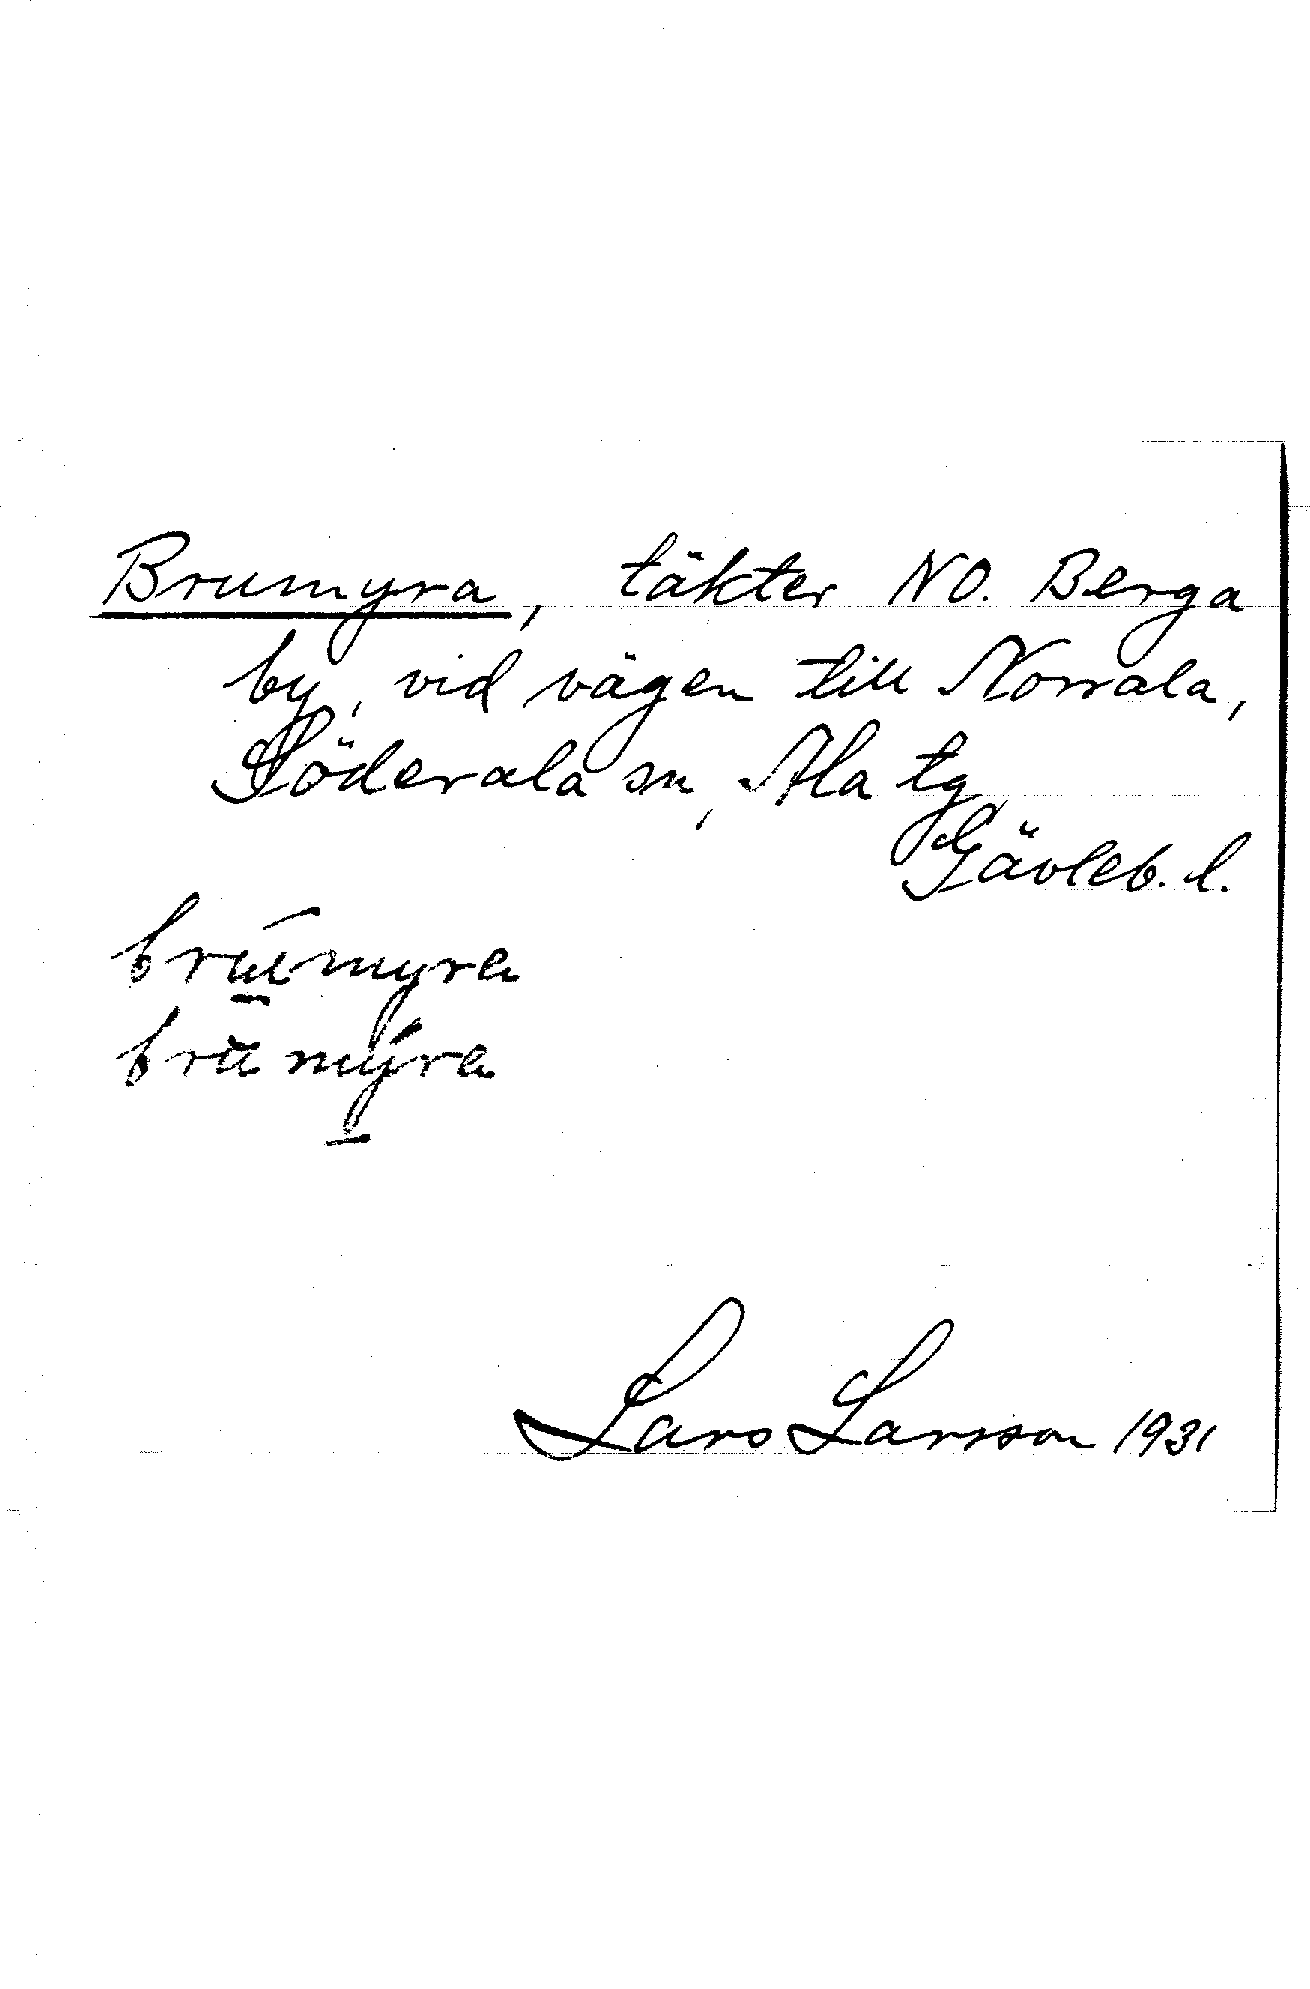 Brumyra, täkter NO. Berga
by, vid vägen till Norrala,
Söderala sn, Ala tg
Gävleb. l.
brúmyra
brumýra
Lars Larsson 1931